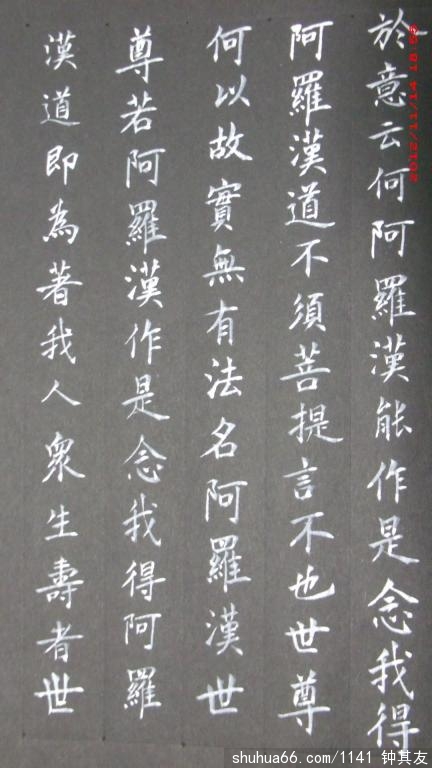 於意云何阿羅漢能作是念我得
阿羅漢道不須菩提言不也世尊
何以故實無有法名阿羅漢世
尊若阿羅漢作是念我得阿羅
漢道即為著我人眾生壽者世
2012/11/14 18:5
shuhua66.com/1141 钟其友